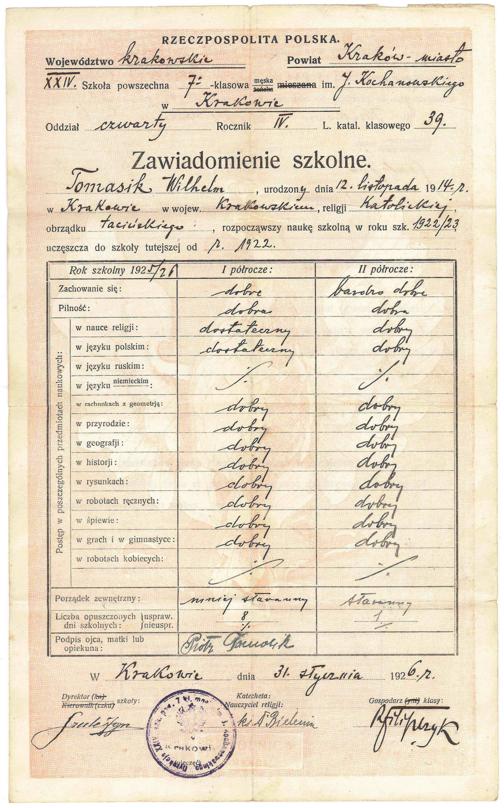 RZECZPOSPOLITA POLSKA.
Województwo krakowskie Powiat Kraków-miasto
XXIV. Szkoła powszechna 7-klasowa męska żeńska mieszana im. J. Kochanowskiego
w Krakowie
Oddział czwarty Rocznik IV. L. katal. klasowego 39.
Zawiadomienie szkolne.
Tomasik Wilhelm, urodzony dnia 12. listopada 1914 r.
w Krakowie w wojew. Krakowskiem, religji Katolickiej
obrządku łacińskiego, rozpocząwszy naukę szkolną w roku szk. 1922/23
uczęszcza do szkoły tutejszej od r. 1922.
Rok szkolny 1925/26 I półrocze: II półrocze:
Zachowanie się: dobre bardzo dobre
Pilność: dobra dobra
Postęp w poszczególnych przedmiotach naukowych:
w nauce religji: dostateczny dobry
w języku polskim: dostateczny dobry
w języku ruskim:
w języku niemieckim: ./. ./.
w rachunkach z geometrją: dobry dobry
w przyrodzie: dobry dobry
w geografji: dobry dobry
w historji: dobry dobry
w rysunkach: dobry dobry
w robotach ręcznych: dobry dobry
w śpiewie: dobry dobry
w grach i w gimnastyce: dobry dobry
w robotach kobiecych: ./. ./.
Porządek zewnętrzny: mniej staranny staranny
Liczba opuszczonych dni szkolnych: uspraw. 8 1
nieuspr. ./. ./.
Podpis ojca, matki lub opiekuna: Piotr Tomasik
W Krakowie dnia 31. stycznia 1926 r.
Dyrektor (ka) Kierownik (czka) szkoły:
Katecheta: Nauczyciel religji:
Gospodarz (yni) klasy: